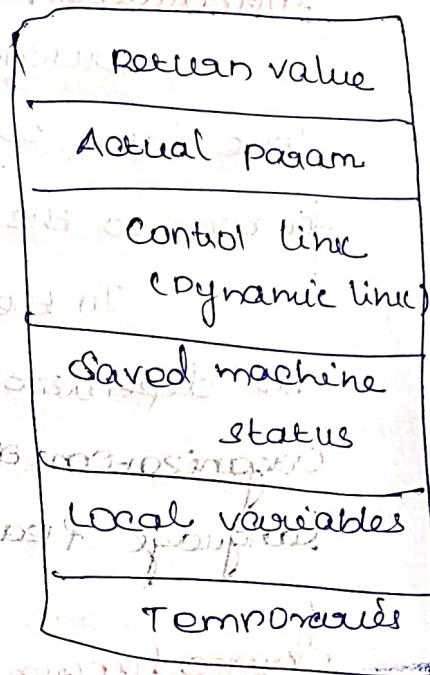 Return value
Actual param
Control link
(Dynamic link)
Saved machine
status
Local variables
Temporaries